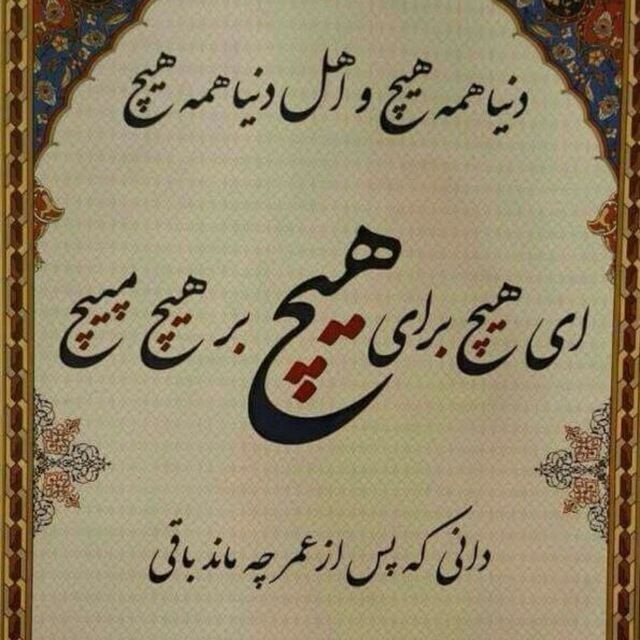 دنیا همه هیچ و اهل دنیا همه هیچ
ای هیچ برای هیچ بر هیچ مپیچ
دانی که پس از عمر چه ماند باقی